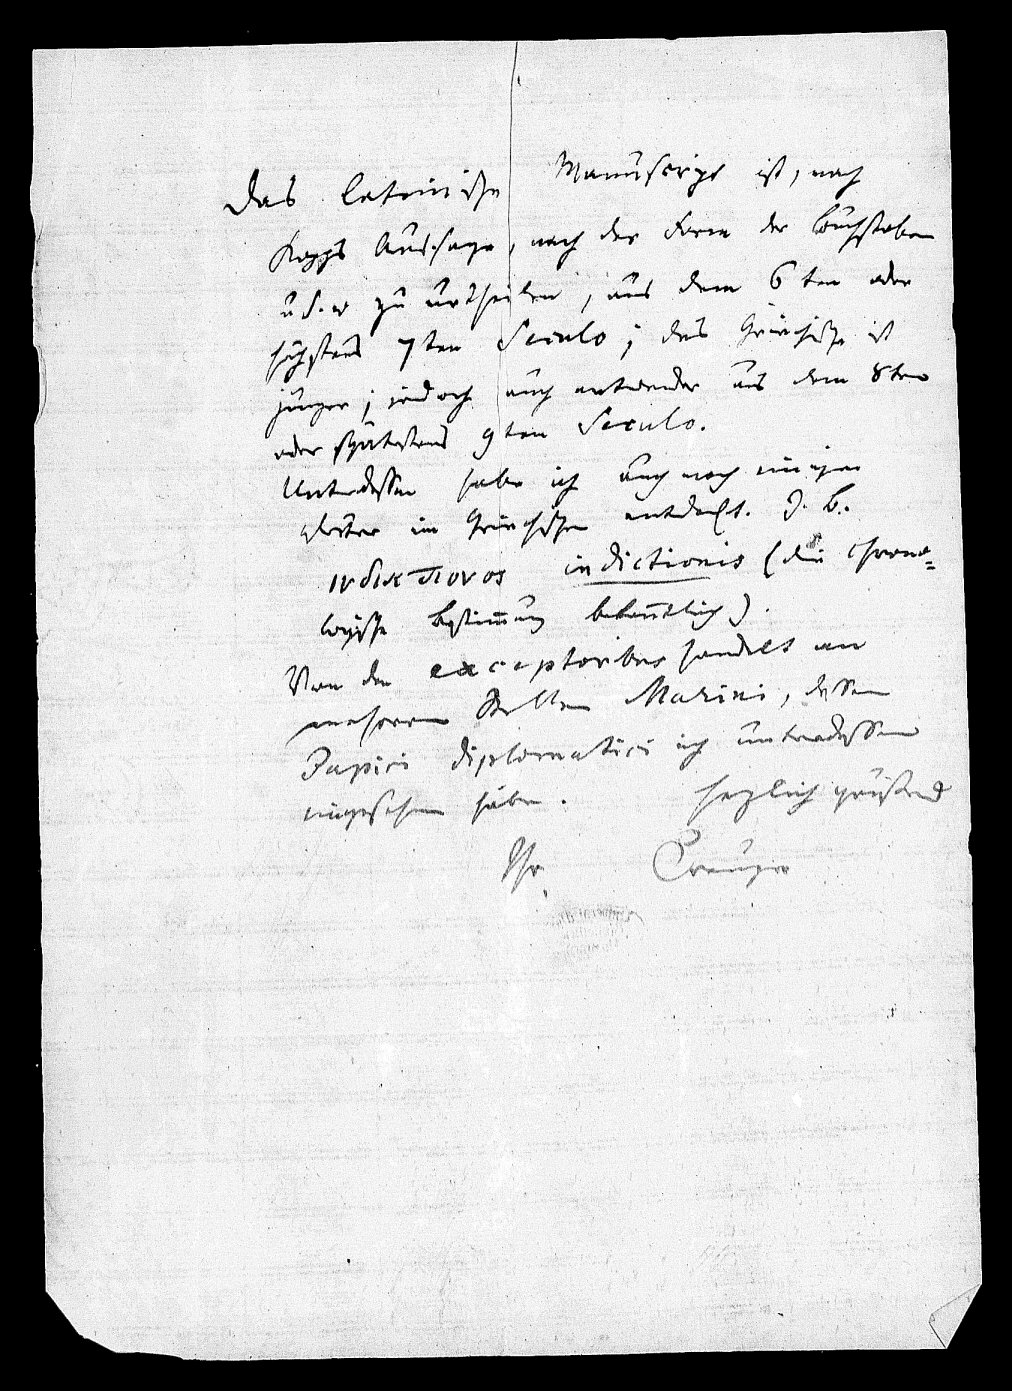 Das lateinische Manuscript ist, nach
Kopps Aussage, nach der Form der Buchstaben
u.s.w zu urtheilen, aus dem 6ten oder
höchstens 7ten Seculo; das Griechische ist
jünger; jedoch auch entweder aus dem 8ten
oder spätestens 9ten Seculo.
Unterdessen habe ich auch noch einige
Wörter im Griechischen entdeckt. Z. B.
ινδικτιονος indictionis (die chrono=
logische Bestimmung bekanntlich).
Von den exceptoribus handelt an
mehreren Stellen Marini, dessen
Papiri diplomatici ich unterdessen
eingesehen habe. herzlich grüßend
Ihr Creuzer